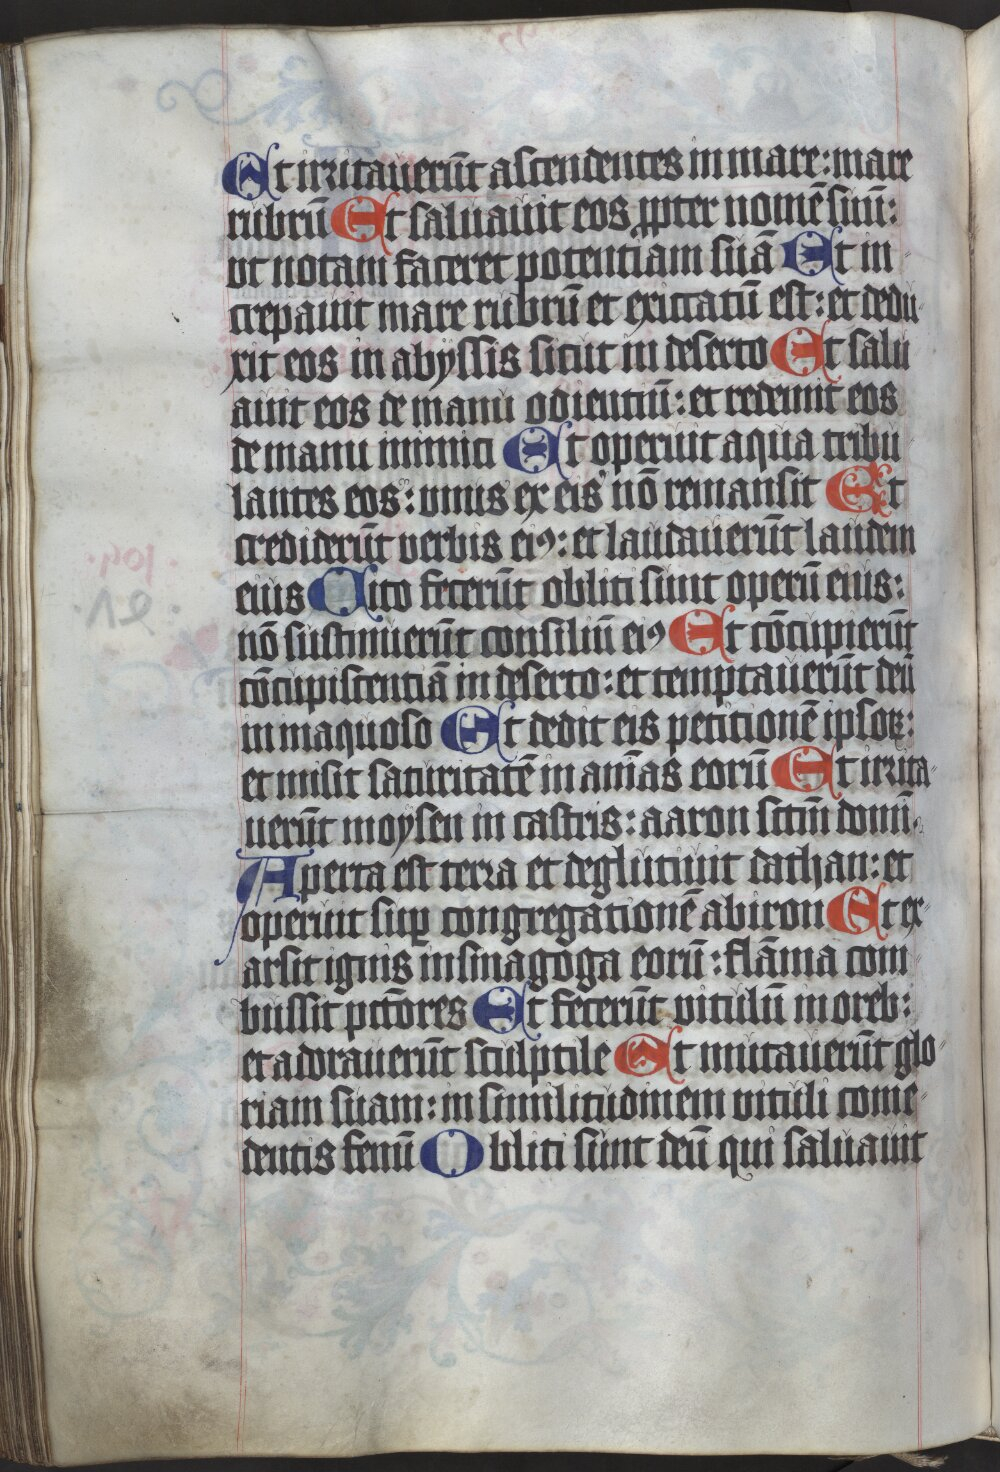 Et irritauerūt ascendentes in mare: mare
rubrū Et saluauit eos ꝓpter nomē suū:
vt notam faceret potentiam suā Et in
crepauit mare rubrū et exiccatū est: et dedu
xit eos in abyssis sicut in deserto Et salu
auit eos de manu odientiū: et redemit eos
de manu inimici Et operuit aqua tribu
lantes eos: vnus ex eis nō remansit Et
crediderūt verbis eiꝰ: et laudauerūt laudem
eius Cito fecerūt obliti sunt operū eius:
nō sustinuerūt consiliū eiꝰ Et cōcupierūt
cōcupiscentiā in deserto: et temptauerūt deū
in inaquoso Et dedit eis petitionē ipsoꝝ:
et misit saturitatē in aīas eorū Et irrita
uerūt moysen in castris: aaron sctm̄ domī
Aperta est terra et deglutiuit dathan: et
operuit suꝑ congregationē abiron Et ex
arsit ignis in sinagoga eorū: flāma com
bussit pctōres Et fecerūt vitulū in oreb:
et adorauerūt sculptile Et mutauerūt glo
riam suam: in similitudinem vituli come
dentis fenū Obliti sunt deū qui saluauit